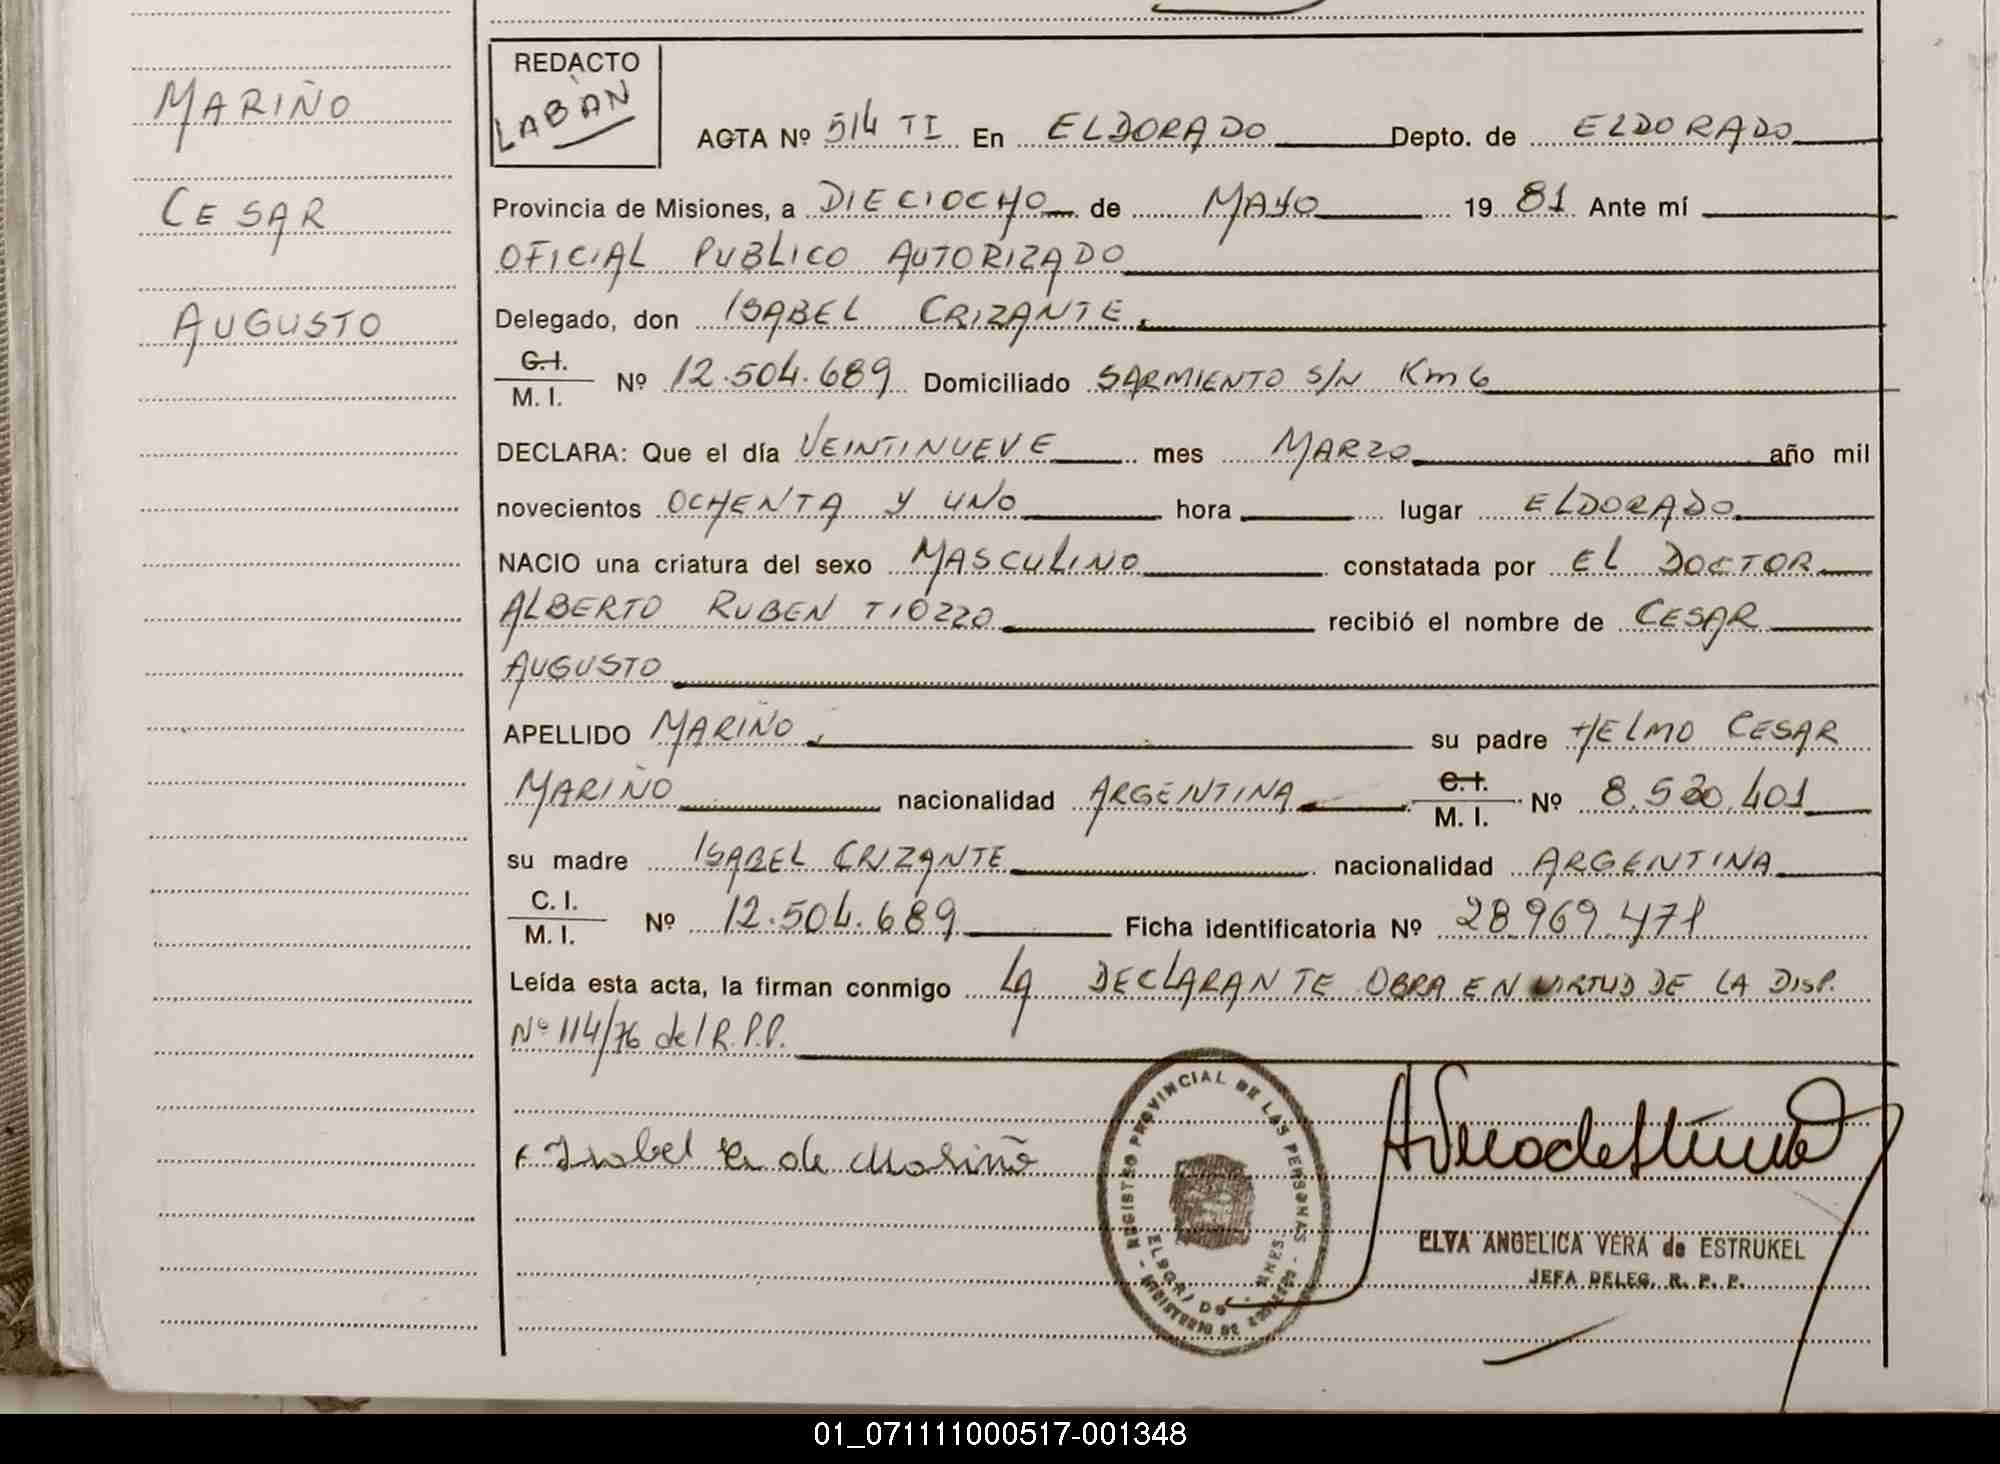 MARIÑO
CESAR
AUGUSTO
REDACTO
LABAN
ACTA Nº 514 TI En ELDORADO Depto. de ELDORADO
Provincia de Misiones, a DIECIOCHO de MAYO 19 81 Ante mí
OFICIAL PUBLICO AUTORIZADO
Delegado, don ISABEL CRIZANTE
C.I.
M. I. Nº 12.504.689 Domiciliado SARMIENTO S/N Km 6
DECLARA: Que el día VEINTINUEVE mes MARZO año mil
novecientos OCHENTA Y UNO hora lugar ELDORADO
NACIO una criatura del sexo MASCULINO constatada por EL DOCTOR
ALBERTO RUBEN TIOZZO recibió el nombre de CESAR
AUGUSTO
APELLIDO MARIÑO, su padre HELMO CESAR
MARIÑO nacionalidad ARGENTINA C.I. M. I. Nº 8.520.401
su madre ISABEL CRIZANTE nacionalidad ARGENTINA
C. I.
M. I. Nº 12.504.689 Ficha identificatoria Nº 28.969.471
Leída esta acta, la firman conmigo La DECLARANTE OBRA EN VIRTUD DE LA DISP.
Nº 114/76 del R.P.P.
Isabel de Mariño
REGISTRO PROVINCIAL DE LAS PERSONAS
ELDORADO
MINISTERIO DE GOBIERNO
MNES.
ELVA ANGELICA VERA de ESTRUKEL
JEFA DELEG. R. P. P.
01_071111000517-001348